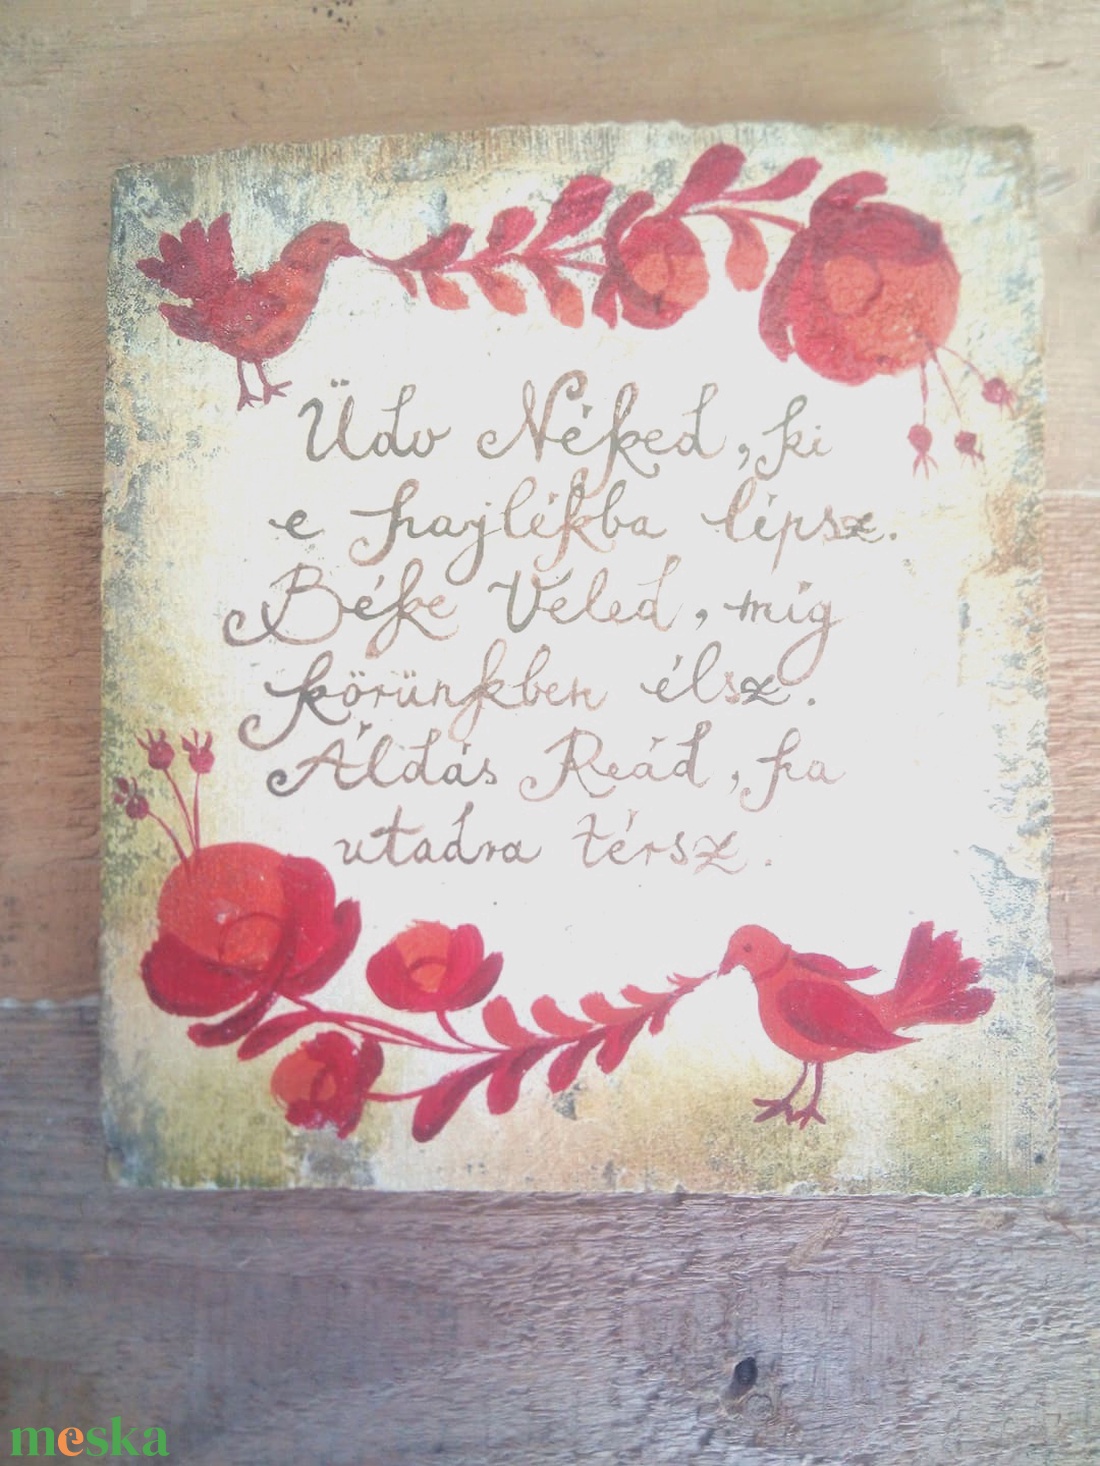 Üdv Néked, ki
e hajlékba lépsz.
Béke Veled, míg
körünkben élsz.
Áldás Reád, ha
utadra térsz.
meska